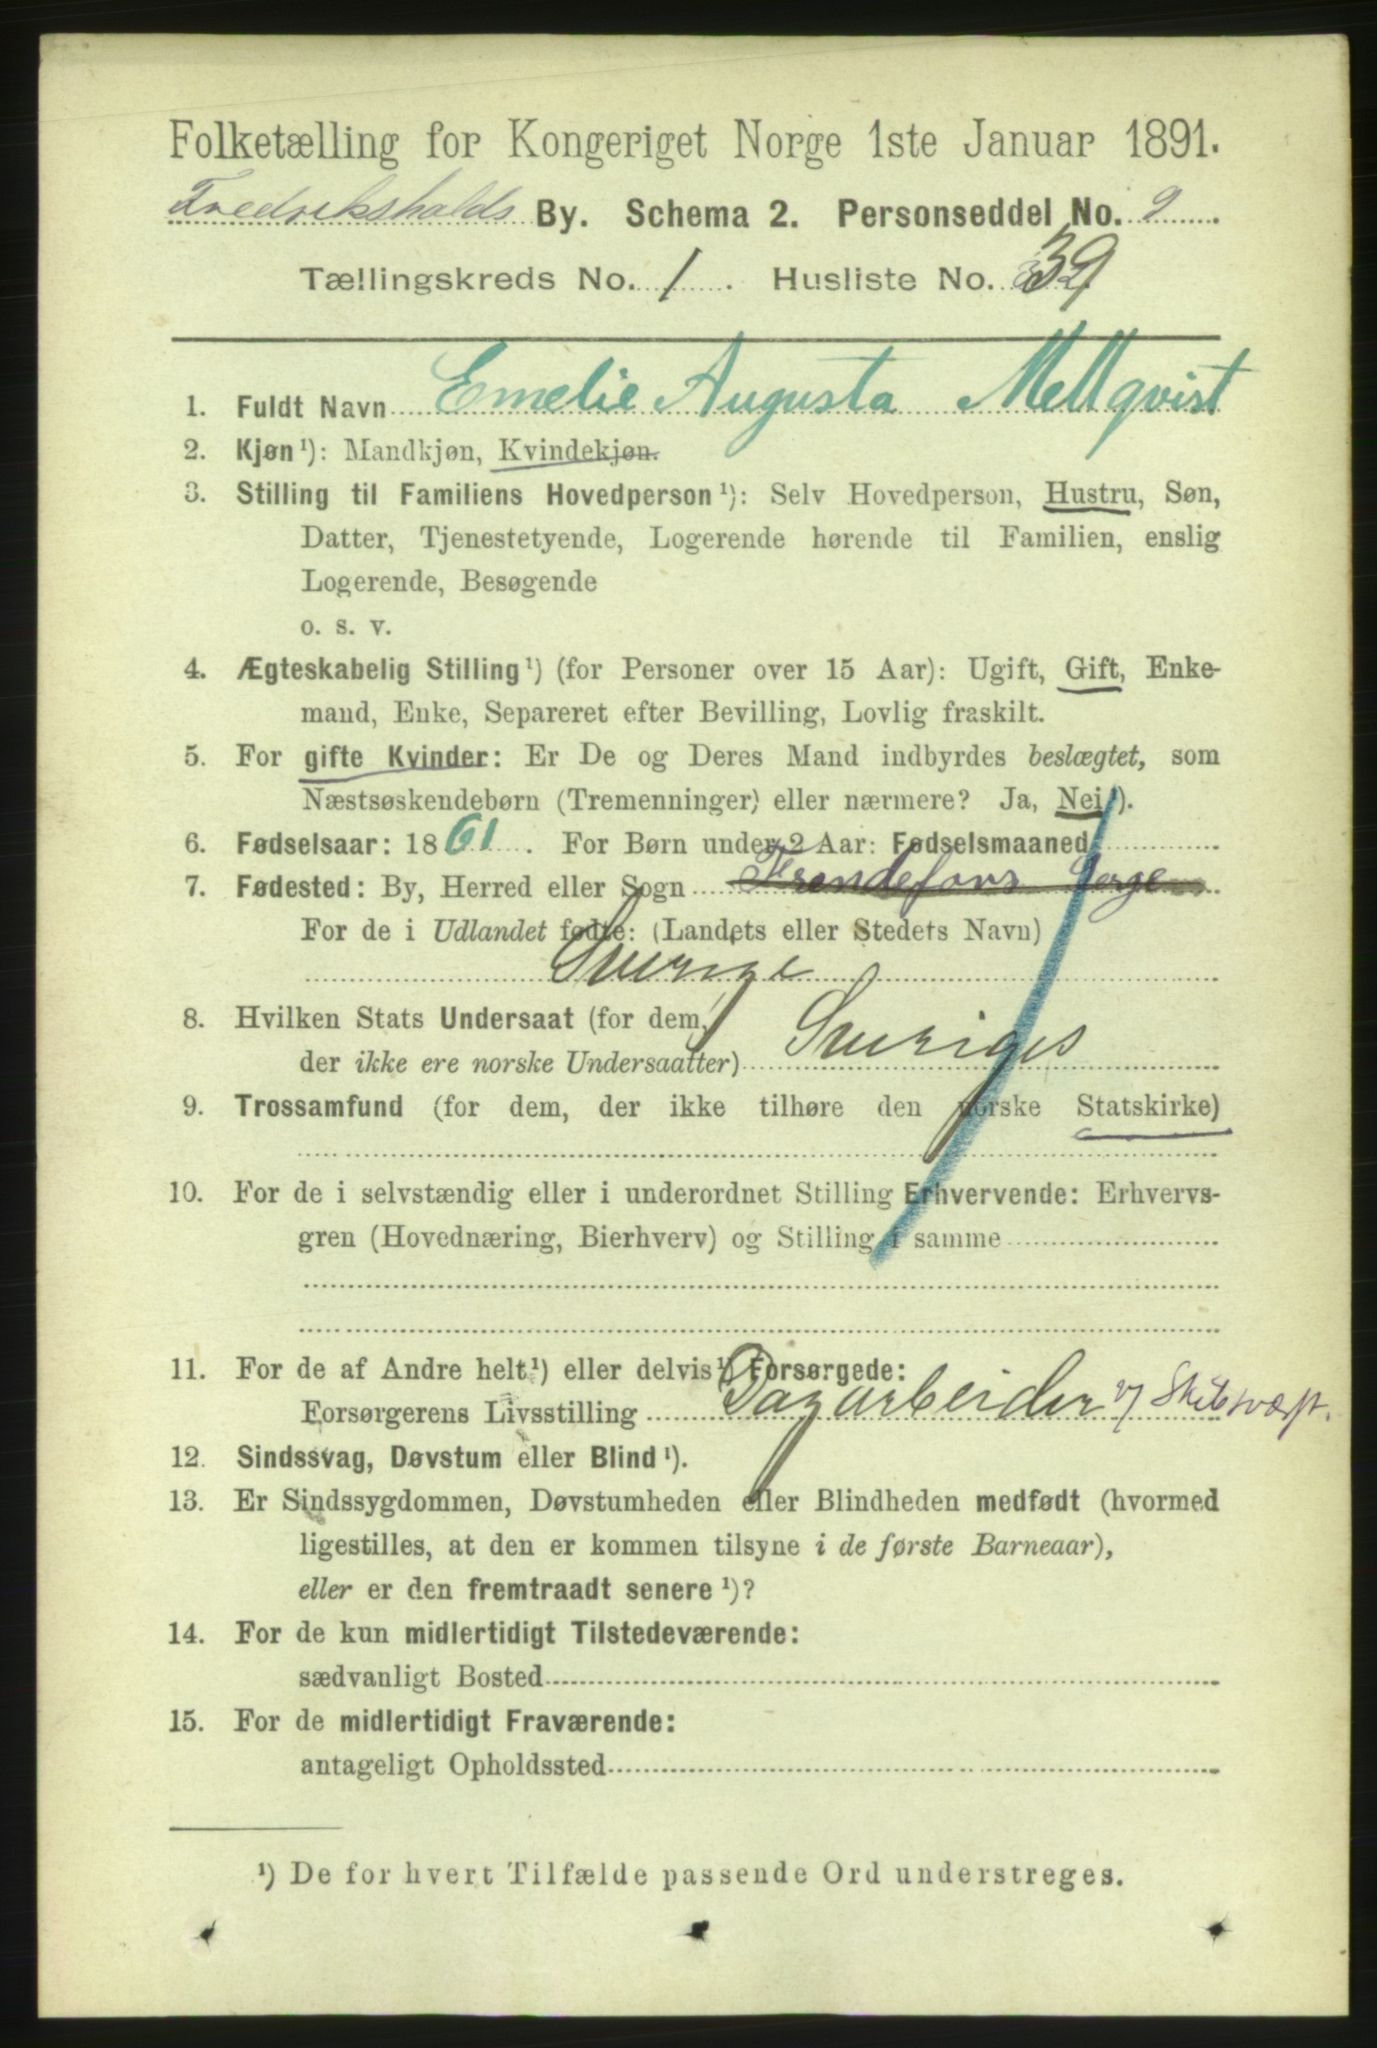 Folketælling for Kongeriget Norge 1ste Januar 1891.
Fredrikshalds By. Schema 2. Personseddel No. 9
Tællingskreds No. 1. Husliste No. 39
1. Fuldt Navn Emelie Augusta Mellqvist
2. Kjøn¹): Mandkjøn, Kvindekjøn.
3. Stilling til Familiens Hovedperson¹): Selv Hovedperson, Hustru, Søn,
Datter, Tjenestetyende, Logerende hørende til Familien, enslig
Logerende, Besøgende
o. s. v.
4. Ægteskabelig Stilling¹) (for Personer over 15 Aar): Ugift, Gift, Enke-
mand, Enke, Separeret efter Bevilling, Lovlig fraskilt.
5. For gifte Kvinder: Er De og Deres Mand indbyrdes beslægtet, som
Næstsøskendebørn (Tremenninger) eller nærmere? Ja, Nei¹).
6. Fødselsaar: 1861. For Børn under 2 Aar: Fødselsmaaned
7. Fødested: By, Herred eller Sogn
For de i Udlandet fødte: (Landets eller Stedets Navn)
Sverige
8. Hvilken Stats Undersaat (for dem,
der ikke ere norske Undersaatter) Sveriges
9. Trossamfund (for dem, der ikke tilhøre den norske Statskirke)
10. For de i selvstændig eller i underordnet Stilling Erhvervende: Erhvervs-
gren (Hovednæring, Bierhverv) og Stilling i samme
11. For de af Andre helt¹) eller delvis¹) Forsørgede:
Forsørgerens Livsstilling Dagarbeider v/ Skibsværft.
12. Sindssvag, Døvstum eller Blind¹).
13. Er Sindssygdommen, Døvstumheden eller Blindheden medfødt (hvormed
ligestilles, at den er kommen tilsyne i de første Barneaar),
eller er den fremtraadt senere¹)?
14. For de kun midlertidigt Tilstedeværende:
sædvanligt Bosted
15. For de midlertidigt Fraværende:
antageligt Opholdssted
¹) De for hvert Tilfælde passende Ord understreges.